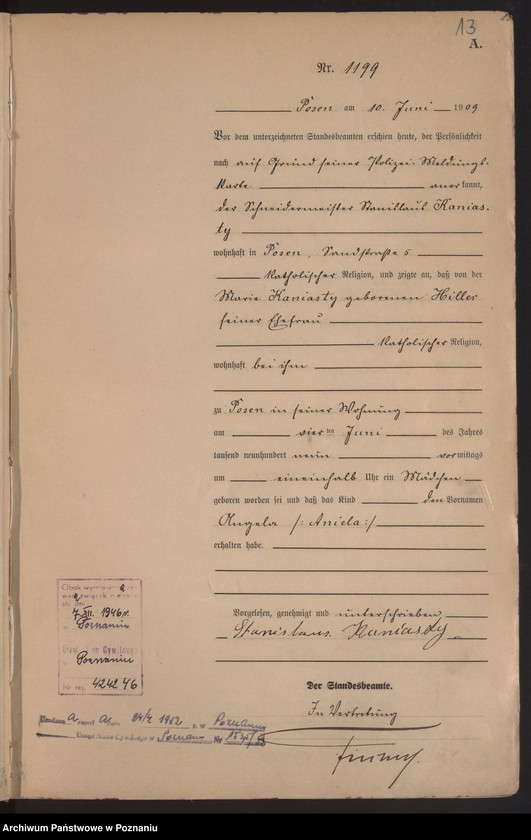 13
A.
Nr. 1199
Posen am 10. Juni 1909
Vor dem unterzeichneten Standesbeamten erschien heute, der Persönlichkeit
nach auf Grund seiner Polizei-Meldungs-
karte anerkannt,
der Schneidermeister Stanislaus Kanias-
ty
wohnhaft in Posen, Sandstraße 5
katholischer Religion, und zeigte an, daß von der
Marie Kaniasty geborenen Hiller
seiner Ehefrau
katholischer Religion,
wohnhaft bei ihm
zu Posen in seiner Wohnung
am vier ten Juni des Jahres
tausend neunhundert neun vormittags
um eineinhalb Uhr ein Mädchen
geboren worden sei und daß das Kind den Vornamen
Angela /: Aniela :/
erhalten habe.
Vorgelesen, genehmigt und unterschrieben
Stanislaus Kaniasty
Der Standesbeamte.
In Vertretung
Obok wymieniona
związek
7 XII. 1946 r.
w Poznaniu
Urząd Cyw.
Poznaniu
Nr rej. 4242 46
24/2 1952 r. w Poznaniu
Urząd Stanu Cywilnego w Poznaniu Nr
Archiwum Państwowe w Poznaniu
Archiwum Państwowe w Poznaniu